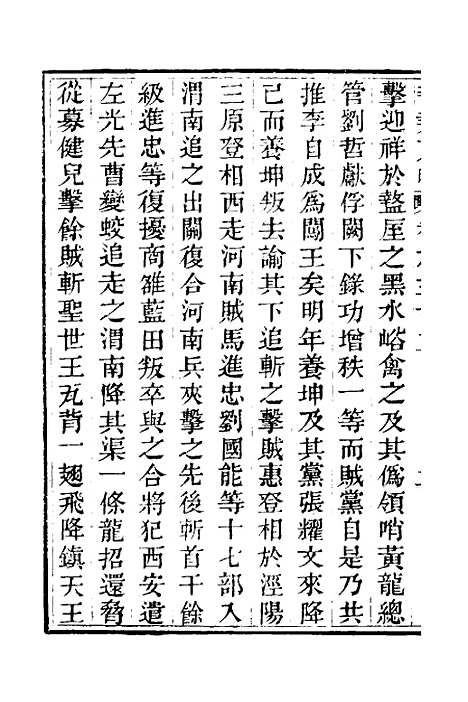 擊迎祥於盩厔之黑水峪禽之及其僞領哨黃龍總
管劉哲獻俘闕下錄功增秩一等而賊黨自是乃共
推李自成爲闖王矣明年養坤及其黨張耀文來降
己而養坤叛去諭其下追斬之擊賊惠登相於涇陽
三原登相西走河南賊馬進忠劉國能等十七部入
渭南追之出關復合河南兵夾擊之先後斬首千餘
級進忠等復擾商雒藍田叛卒與之合將犯西安遣
左光先曹變蛟追走之渭南降其渠一條龍招還脅
從募健兒擊餘賊斬聖世王瓦背一翅飛降鎮天王